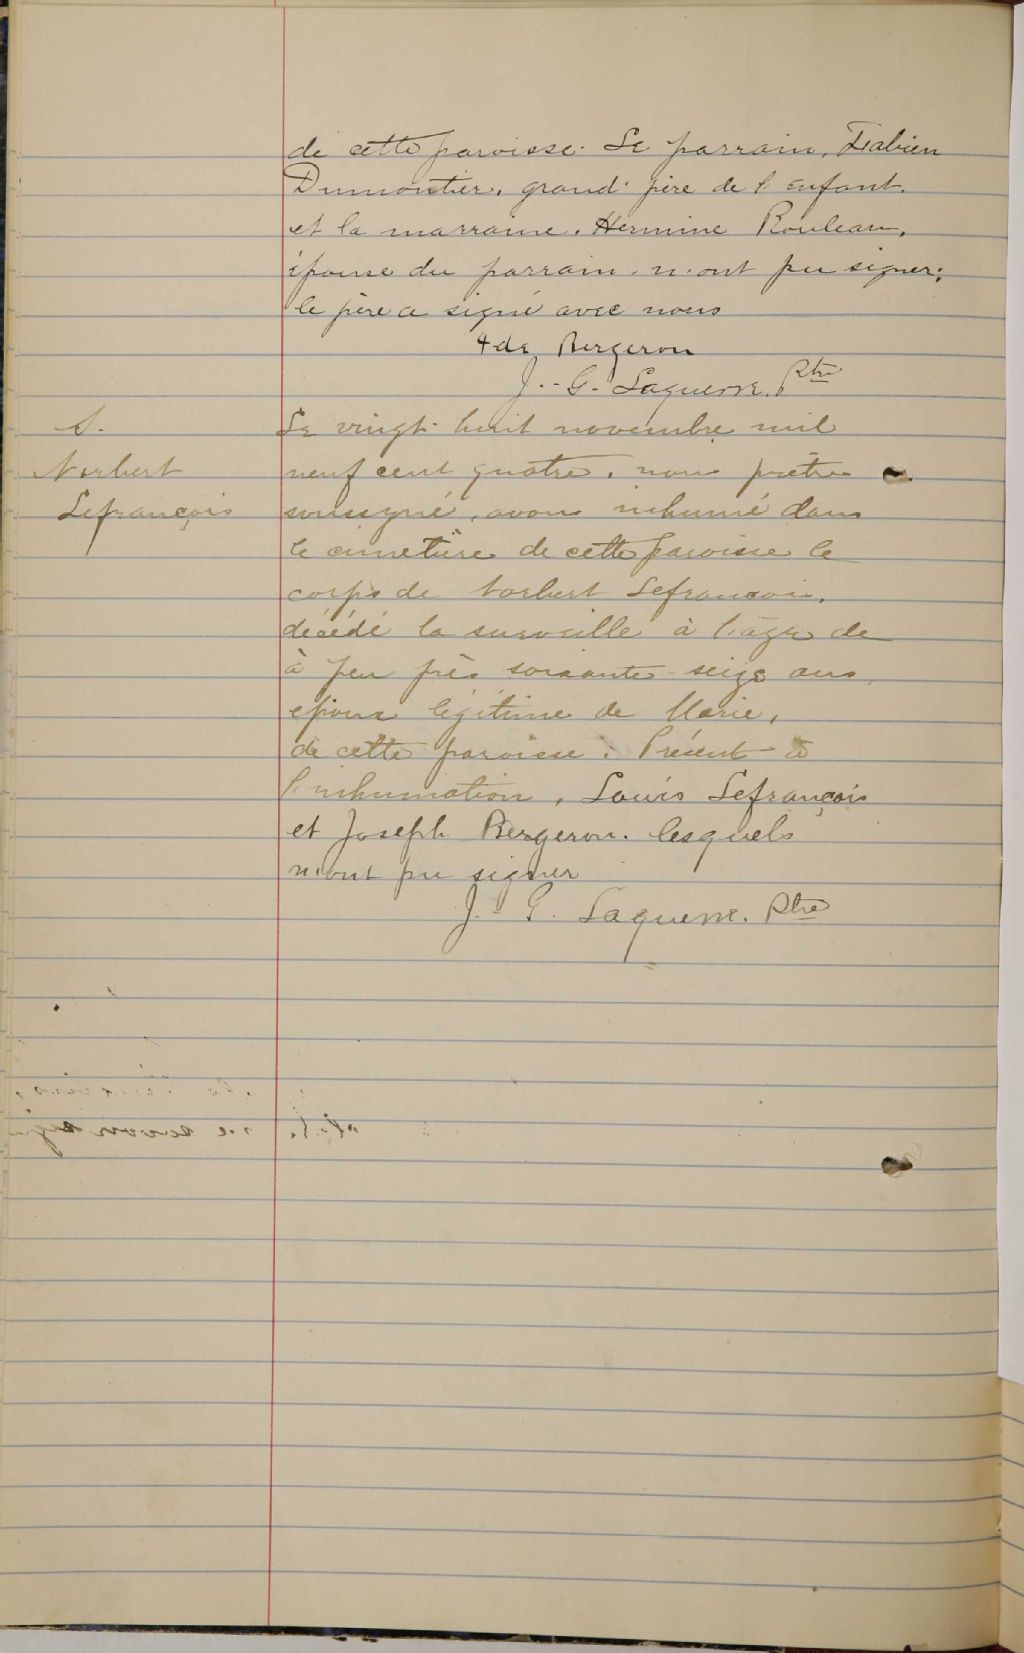 de cette paroisse. Le parrain, Fabien
Dumontier, grand-père de l'enfant.
et la marraine, Hermine Rouleau,
épouse du parrain, n'ont pu signer;
le père a signé avec nous
Bergeron
J.-G. Laguerre, Ptre
S.
Norbert
Lefrançois
Le vingt-huit novembre mil
neuf cent quatre, nous prêtre
soussigné, avons inhumé dans
le cimetière de cette paroisse le
corps de Norbert Lefrancois,
décédé la surveille à l'âge de
à peu près soixante-seize ans,
époux légitime de Marie,
de cette paroisse. Présent à
l'inhumation, Louis Lefrançois
et Joseph Bergeron. lesquels
n'ont pu signer
J.-G. Laguerre. Ptre